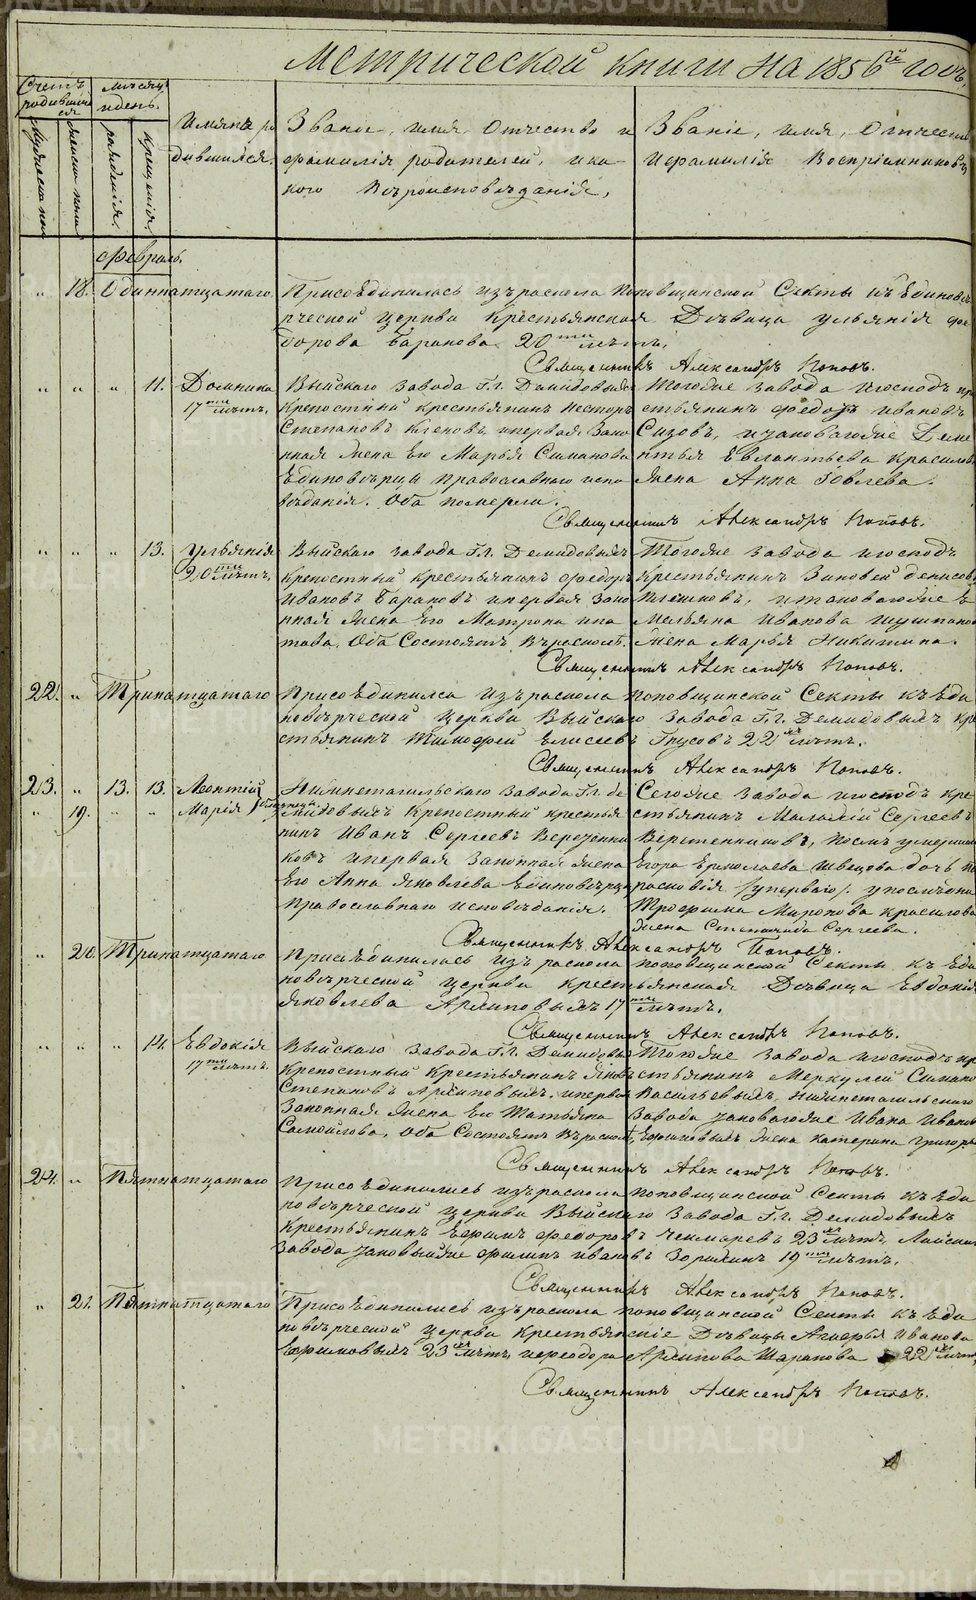 Метрической книги на 1856й годъ,
Счетъ родившихся
Мѣсяцъ и день.
Мужеска пола
Женска пола
рожденія.
крещенія.
Имяна родившихся.
Званіе, имя, отчество и фамилія родителей, и какого вѣроисповѣданія,
Званіе, имя, отчество и фамилія воспріемниковъ
февраль.
" 18. Одиннатцатаго Присоединилась изъ раскола поповщинской секты къ единовѣ
рческой церкви крестьянская дѣвица Ульянія Фе
дорова Баранова 20ти лѣтъ,
Священникъ Александръ Поповъ.
" " " 11. Домника
17ти лѣтъ,
Выйскаго завода Г.г. Демидовыхъ
крепостный крестьянинъ Несторъ
Степановъ Кленовъ, и первая зако
нная жена его Марья Симанова
единовѣрцы православнаго испо
вѣданія. Оба померли.
Тогоже завода и господъ кре
стьянинъ Федоръ Ивановъ
Сизовъ, и заковаюже
жена Анна Іовлева.
Священникъ Александръ Поповъ.
" " " 13. Ульянія
20ти лѣтъ,
Выйскаго завода Г.г. Демидовыхъ
крепостный крестьянинъ Федоръ
Ивановъ Барановъ и первая зако
нная жена его Матрона
Оба состоятъ въ расколѣ.
Тогоже завода и господъ
крестьянинъ Зиновей Денисовъ
Мельяна Иванова
жена Марья Никитина.
Священникъ Александръ Поповъ.
22. " Тринатцатаго Присоединился изъ раскола поповщинской секты къ еди
новѣрческой церкви Выйскаго завода Г.г. Демидовыхъ кре
стьянинъ Тимофей Елисеевъ Трусовъ 22хъ лѣтъ.
Священникъ Александръ Поповъ.
23. " 13. 13. Леонтій
" 19. " " Марія близнецы
Нижнетагильскаго завода Г.г. Де
мидовыхъ крепостный крестья
нинъ Иванъ Сергеевъ Веретенни
ковъ и первая законная жена
его Анна Яковлева единовѣрцы
православнаго исповѣданія.
Сегоже завода и господъ кре
стьянинъ Сергеевъ
Веретенниковъ, после умершаго
Егора Ермолаева Швецова дочь Па
расковія /у перваго/. у последней
Трофима Миронова Красилова
жена Степанида Сергеева.
Священникъ Александръ Поповъ.
" 20. Тринатцатаго Присоединилась изъ раскола поповщинской секты къ еди
новѣрческой церкви крестьянская дѣвица Евдокія
Яковлева Архиповыхъ 17ти лѣтъ.
Священникъ Александръ Поповъ.
" " " 14. Евдокія
17ти лѣтъ.
Выйскаго завода Г.г. Демидовыхъ
крепостный крестьянинъ Яковъ
Степановъ Архиповыхъ, и первая
законная жена его Татьяна
Самойлова, оба состоятъ въ расколѣ,
Тогоже завода и господъ кре
стьянинъ Меркулей Симано
Васильевыхъ, Нижнетагильскаго
завода заковаюже Ивана Ивано
Ефимовыхъ жена Катерина Григорь
Священникъ Александръ Поповъ.
24. " Пятнатцатаго Присоединились изъ раскола поповщинской секты къ еди
новѣрческой церкви Выйскаго завода Г.г. Демидовыхъ
крестьянинъ Ефимъ Федоровъ Чекмаревъ 23хъ лѣтъ
завода Филипъ Ивановъ Зорихинъ 19ти лѣтъ.
Священникъ Александръ Поповъ.
" 21. Пятнатцатаго Присоединились изъ раскола поповщинской секты къ еди
новѣрческой церкви крестьянскіе дѣвицы Иванова
Ефимовыхъ 23хъ лѣтъ, Архипова Шарапова 22хъ лѣтъ
Священникъ Александръ Поповъ.
METRIKI.GASO-URAL.RU